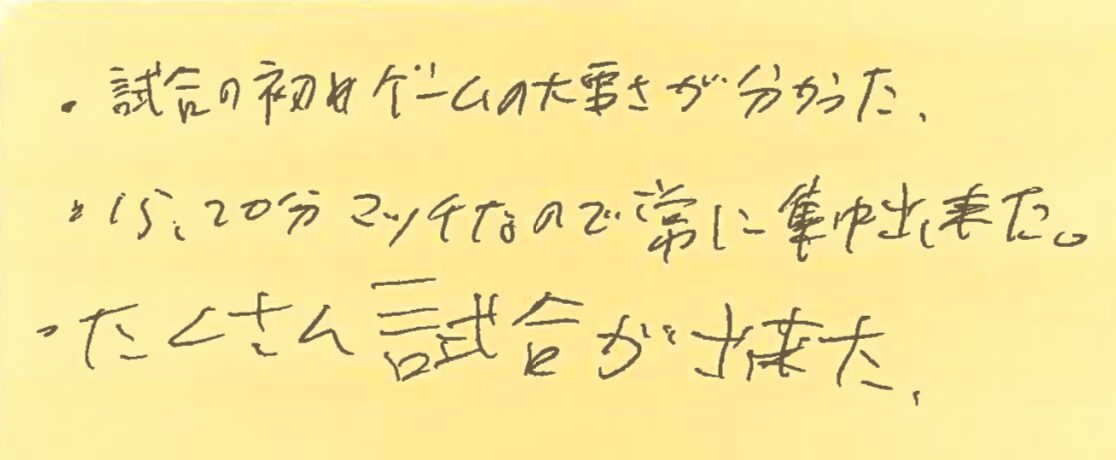 ・試合の初めゲームの大事さが分かった.
・15、20分マッチなので常に集中出来た。
・たくさん試合が出来た.